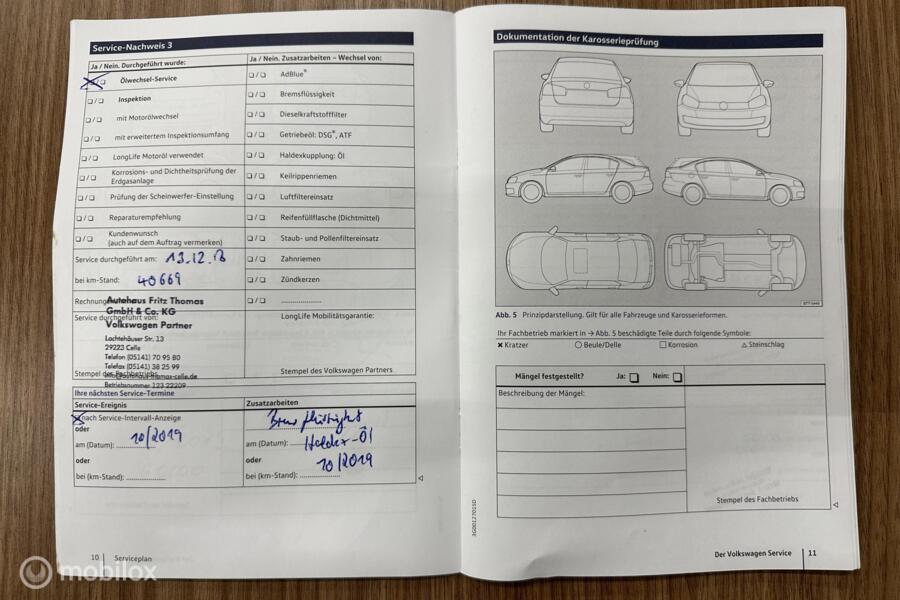 Service-Nachweis 3
Ja / Nein. Durchgeführt wurde:
Ölwechsel-Service
Inspektion
mit Motorölwechsel
mit erweitertem Inspektionsumfang
LongLife Motoröl verwendet
Korrosions- und Dichtheitsprüfung der
Erdgasanlage
Prüfung der Scheinwerfer-Einstellung
Reparaturempfehlung
Kundenwunsch
(auch auf dem Auftrag vermerken)
Service durchgeführt am: 13.12.18
bei km-Stand: 40669
Autohaus Fritz Thomas
GmbH & Co. KG
Service durchgeführt von:
Volkswagen Partner
Lachtehäuser Str. 13
29223 Celle
Telefon (05141) 70 95 80
Telefax (05141) 38 25 99
Stempel des Fachbetriebs
Betriebsnummer 123 22209
Ja / Nein. Zusatzarbeiten – Wechsel von:
AdBlue®
Bremsflüssigkeit
Dieselkraftstofffilter
Getriebeöl: DSG®, ATF
Haldexkupplung: Öl
Keilrippenriemen
Luftfiltereinsatz
Reifenfüllflasche (Dichtmittel)
Staub- und Pollenfiltereinsatz
Zahnriemen
Zündkerzen
LongLife Mobilitätsgarantie:
Stempel des Volkswagen Partners
Ihre nächsten Service-Termine
Service-Ereignis
nach Service-Intervall-Anzeige
oder
am (Datum): 10/2019
oder
bei (km-Stand):
Zusatzarbeiten
am (Datum): Haldex-Öl
oder 10/2019
bei (km-Stand):
10 Serviceplan
Dokumentation der Karosserieprüfung
Abb. 5 Prinzipdarstellung. Gilt für alle Fahrzeuge und Karosserieformen.
Ihr Fachbetrieb markiert in → Abb. 5 beschädigte Teile durch folgende Symbole:
Kratzer Beule/Delle Korrosion Steinschlag
Mängel festgestellt? Ja: Nein:
Beschreibung der Mängel:
Stempel des Fachbetriebs
3G0012701SD
Der Volkswagen Service 11
mobilox